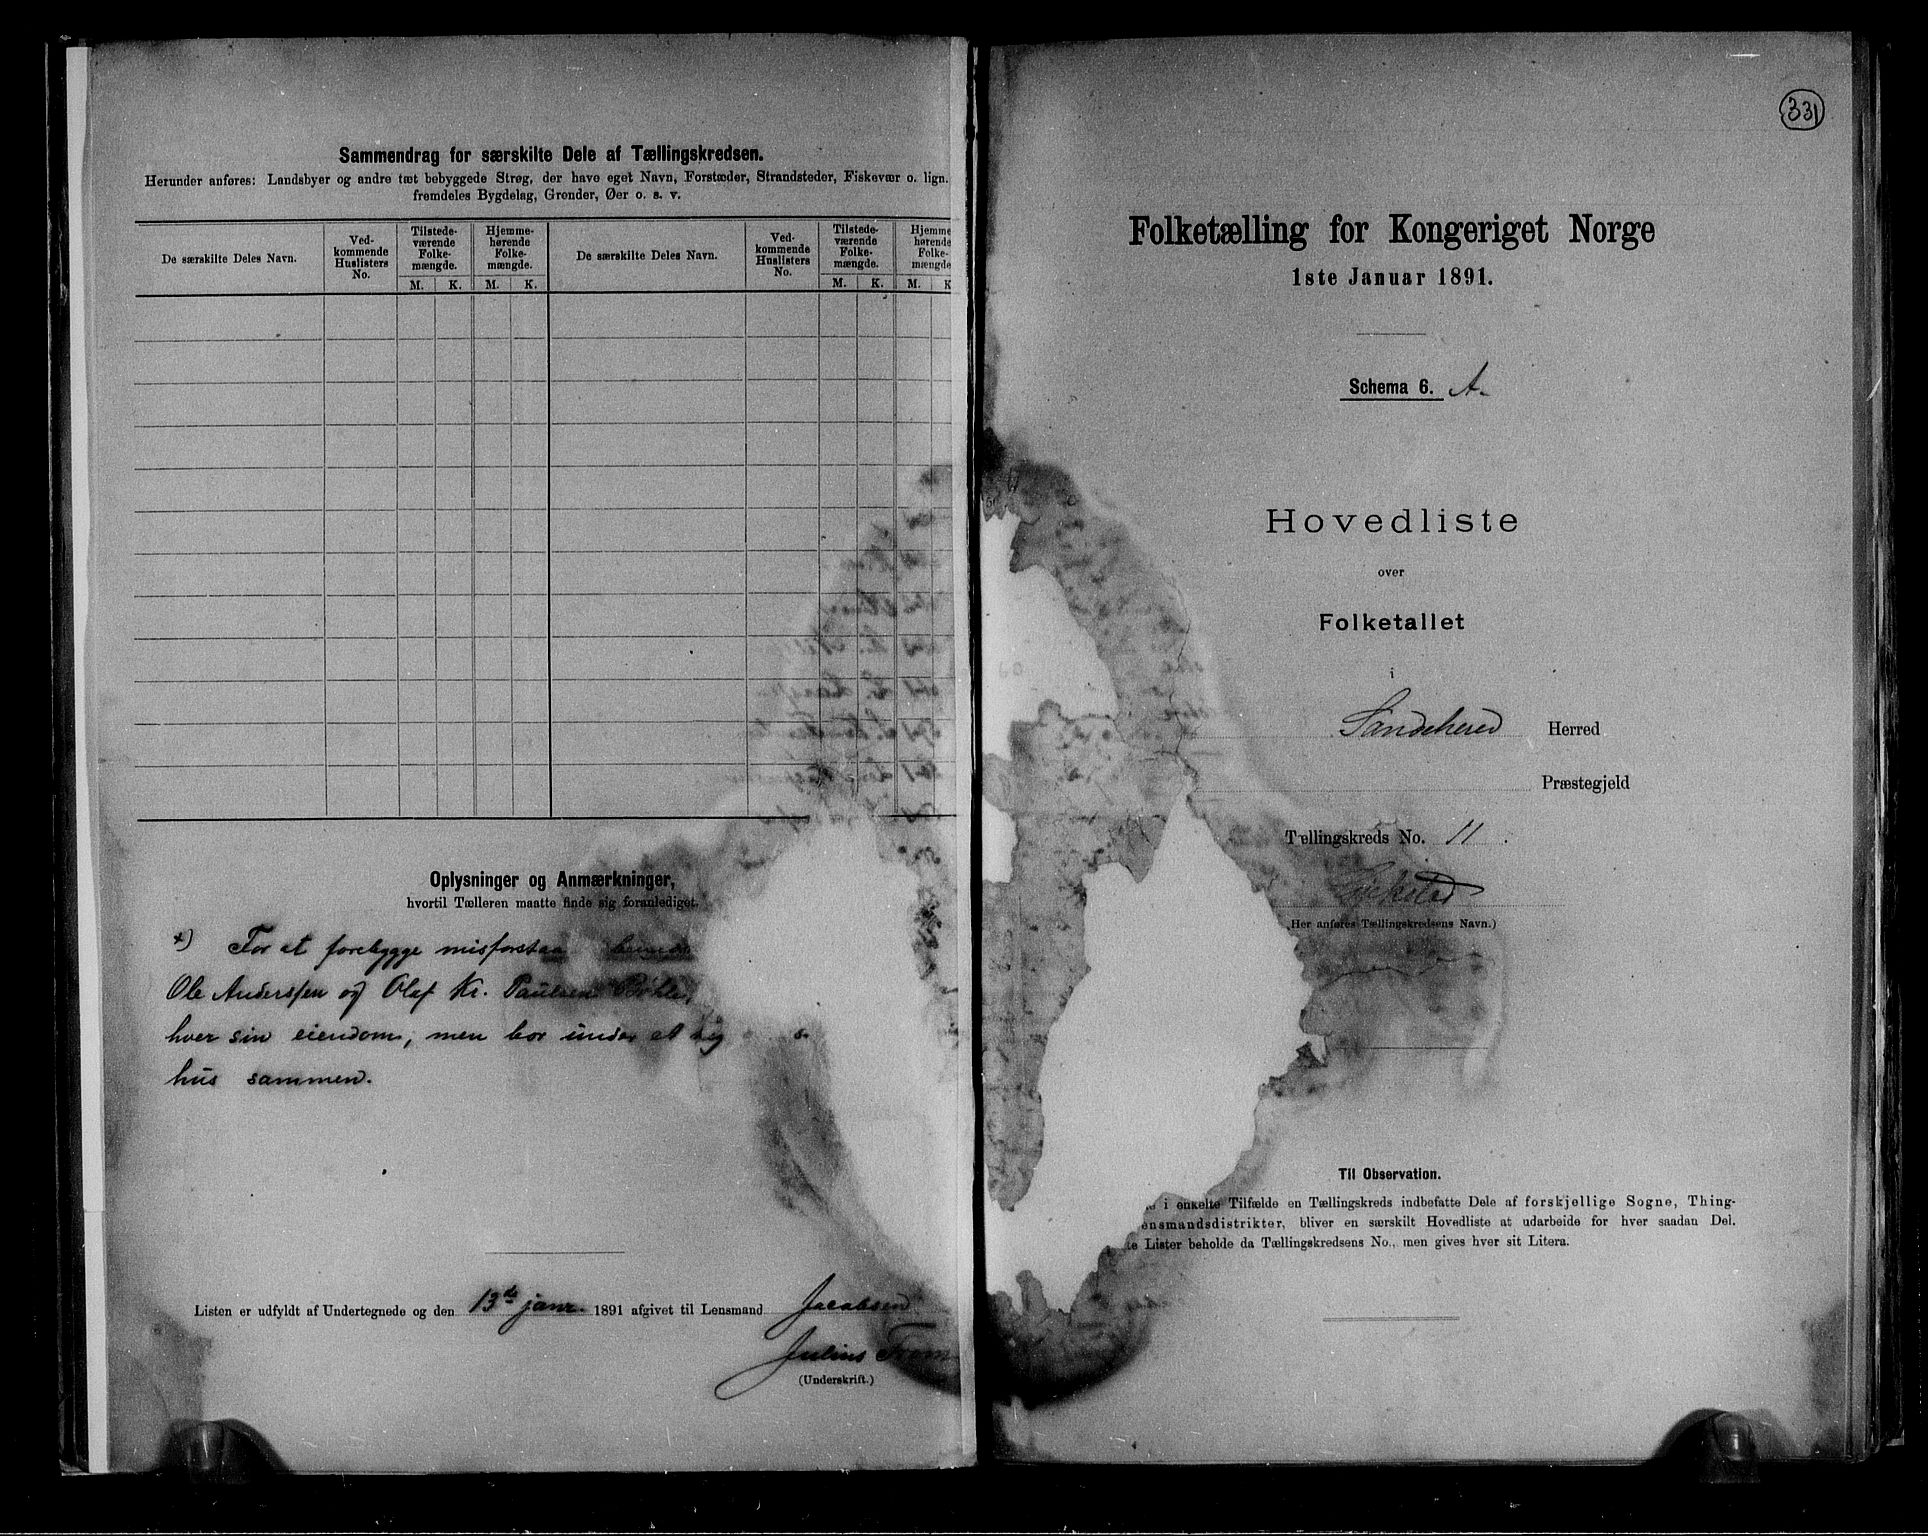 Sammendrag for særskilte Dele af Tællingskredsen.
Herunder anføres: Landsbyer og andre tæt bebyggede Strøg, der have eget Navn, Forstæder, Strandsteder, Fiskevær o. lign.
fremdeles Bygdelag, Grender, Øer o. s. v.
De særskilte Deles Navn.
Ved-
kommende
Huslisters
No.
Tilstede-
værende
Folke-
mængde.
M. K.
Hjemme-
hørende
Folke-
mængde.
M. K.
De særskilte Deles Navn.
Ved-
kommende
Huslisters
No.
Tilstede-
værende
Folke-
mængde.
M. K.
Hjemme
hørende
Folke-
mængde
M. K
Oplysninger og Anmærkninger,
hvortil Tælleren maatte finde sig foranlediget.
x) For at forebygge misforstaa
Ole Anderssen og Olaf Kr. Paulsen
hver sin eiendom, men bor under et
hus sammen.
Listen er udfyldt af Undertegnede og den 13de janr. 1891 afgivet til Lensmand Jacobsen
Julius From
(Underskrift.)
331
Folketælling for Kongeriget Norge
1ste Januar 1891.
Schema 6. A.
Hovedliste
over
Folketallet
i
Sandeherred Herred
Præstegjeld
Tællingskreds No. 11.
(Her anføres Tællingskredsens Navn.)
Til Observation.
i enkelte Tilfælde en Tællingskreds indbefatte Dele af forskjellige Sogne, Thing-
ensmandsdistrikter, bliver en særskilt Hovedliste at udarbeide for hver saadan Del.
te Lister beholde da Tællingskredsens No., men gives hver sit Litera.